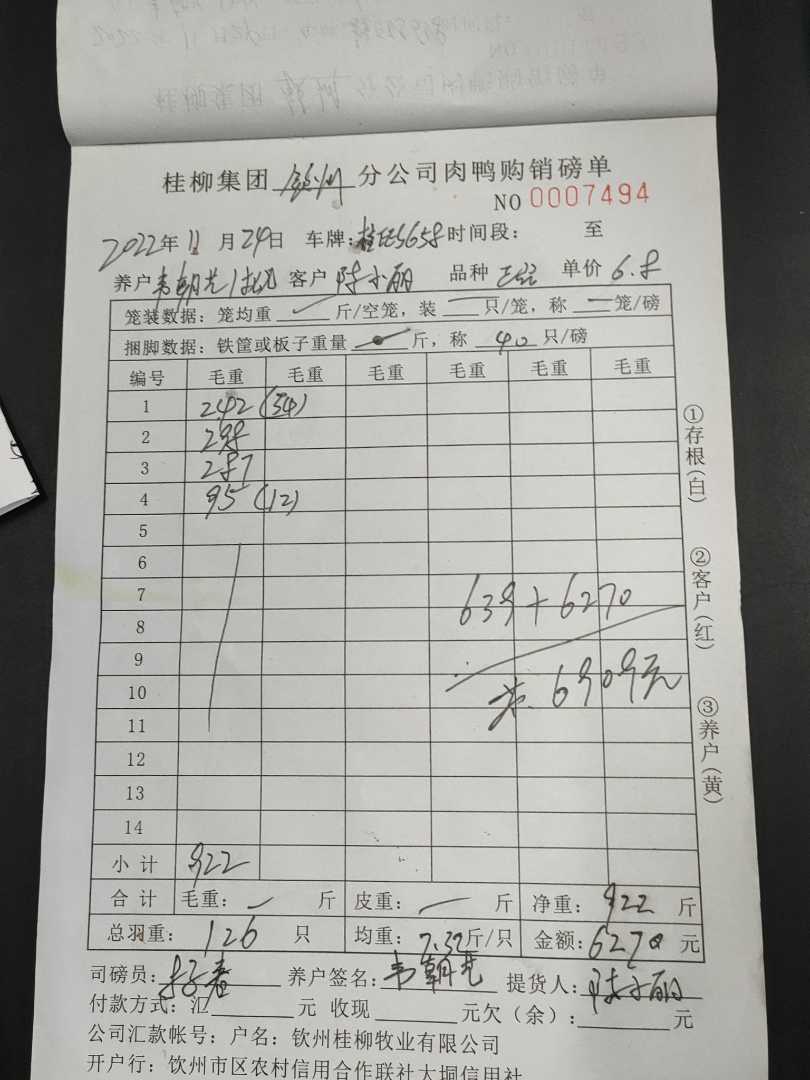 桂柳集团 钦州 分公司肉鸭购销磅单
NO 0007494
2022年 11 月 24日 车牌: 时间段: 至
养户 韦朝光 客户 陈小丽 品种 单价 6.8
笼装数据: 笼均重 斤/空笼, 装 只/笼, 称 笼/磅
捆脚数据: 铁筐或板子重量 斤, 称 40 只/磅
编号 毛重 毛重 毛重 毛重 毛重 毛重
1 242 (34)
2 298
3 287
4 95 (12)
5
6
7
8
639 + 6270
9
10
6909元
11
12
13
14
小计 922
合计 毛重: 斤 皮重: 斤 净重: 922 斤
总羽重: 126 只 均重: 7.32斤/只 金额: 6270 元
司磅员: 养户签名: 韦朝光 提货人: 陈小丽
付款方式: 汇 元 收现 元欠(余): 元
公司汇款帐号: 户名: 钦州桂柳牧业有限公司
开户行: 钦州市区农村信用合作联社大垌信用社
①存根(白)
②客户(红)
③养户(黄)